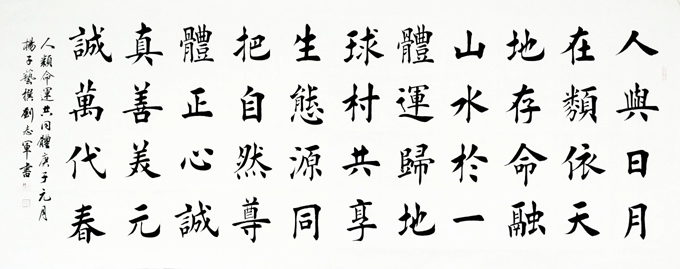 人與日月
在類依天
地存命融
山水於一
體運歸地
球村共享
生態源同
把自然尊
體正心誠
真善美元
誠萬代春
人類命運共同體庚子元月
揚子藝撰劉志軍書